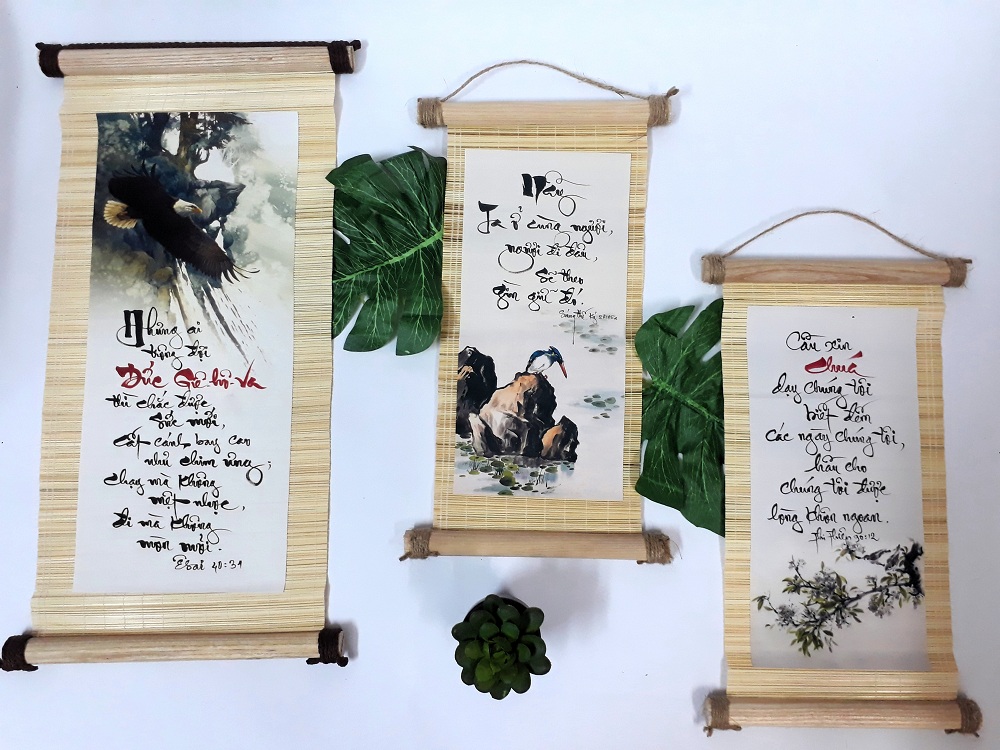 Những ai
trông đợi
Đức Giê-hô-va
thì chắc được
sức mới,
cất cánh bay cao
như chim ưng;
chạy mà không
mệt nhọc,
đi mà không
mòn mỏi.
Êsai 40:31
Nầy
Ta ở cùng ngươi,
ngươi đi đâu,
sẽ theo
gìn giữ đó.
Sáng Thế Ký
Cầu xin
Chúa
dạy chúng tôi
biết đếm
các ngày chúng tôi,
hầu cho
chúng tôi được
lòng khôn ngoan.
Thi Thiên 90:12